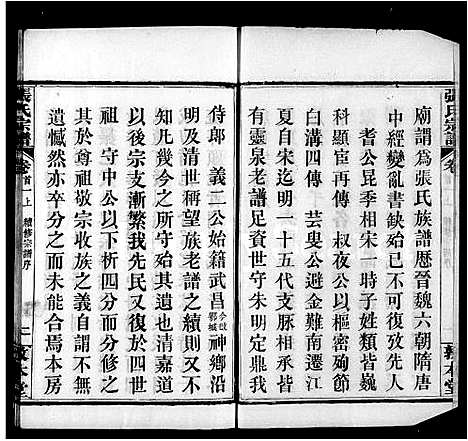 張氏宗譜
廟謂爲張氏族譜歷晉魏六朝隋唐
中經變亂書缺始已不可攷致先人
耆公昆季相宋一時子姓類皆巍
科顯官四傳 叔夜公以樞密殉節
五傳 芸叟公避金難南遷江
夏自宋迄明一十五代支脈相承皆
有靈泉老譜足資世守朱明定鼎我
侍郎 義二公始籍武昌今改鄂城神鄉沿
明及清世稱望族老譜之續則又不
知凡幾今之所守殆其遺也清嘉道
以後宗支漸繁我先民又復於四世
祖 守中公以下析四分而分修之
其於尊祖敬宗收族之義自謂不無
遺憾然亦卒分之而未能合焉本房
張氏宗譜
卷首上 續修宗譜序
敦本堂